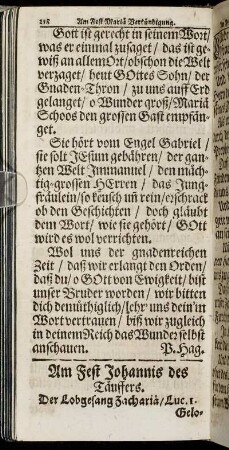 218 Am Fest Mariä Verkündigung.
Gott ist gerecht in seinem Wort/
was er einmal zusaget / das ist ge-
wiß an allem Ort/ obschon die Welt
verzaget/ heut GOttes Sohn/ der
Gnaden-Thron / zu uns auff Erd
gelanget/ o Wunder groß/ Mariä
Schoos den grossen Gast empfän-
get.
Sie hört vom Engel Gabriel/
sie solt JEsum gebähren/ der gan-
tzen Welt Immanuel/ den mäch-
tig-grossen HErren / das Jung-
fräulein/ so keusch uñ rein/ erschrack
ob den Geschichten / doch gläubt
dem Wort/ wie sie gehört/ GOtt
wird es wol verrichten.
Wol uns der gnadenreichen
Zeit / daß wir erlangt den Orden/
daß du/ o GOtt von Ewigkeit/ bist
unser Bruder worden/ wir bitten
dich demüthiglich/ lehr uns dein'm
Wort vertrauen/ biß wir zugleich
in deinem Reich das Wunder selbst
anschauen. P. Hag.
Am Fest Johannis des
Täuffers.
Der Lobgesang Zachariä/ Luc. 1.
Gelo-